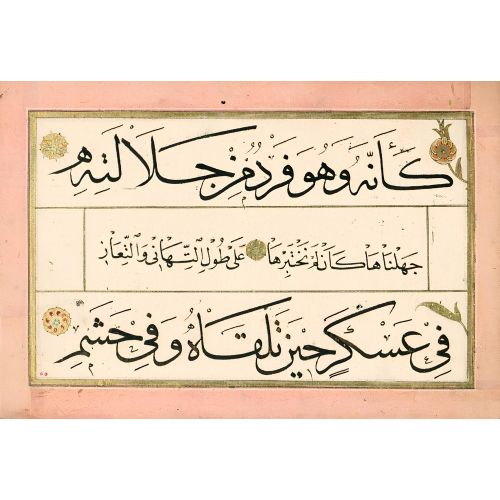 كَأَنَّهُ وَهُوَ فَرْدٌ مِنْ جَلَالَتِهِ
جَهِلْنَاهَا كَأَن لَمْ نَخْتَبِرْهَا عَلَى طُولِ التَّهَانِي وَالتَّعَازِ
فِي عَسْكَرٍ حِينَ تَلْقَاهُ وَفِي حَشَمِ